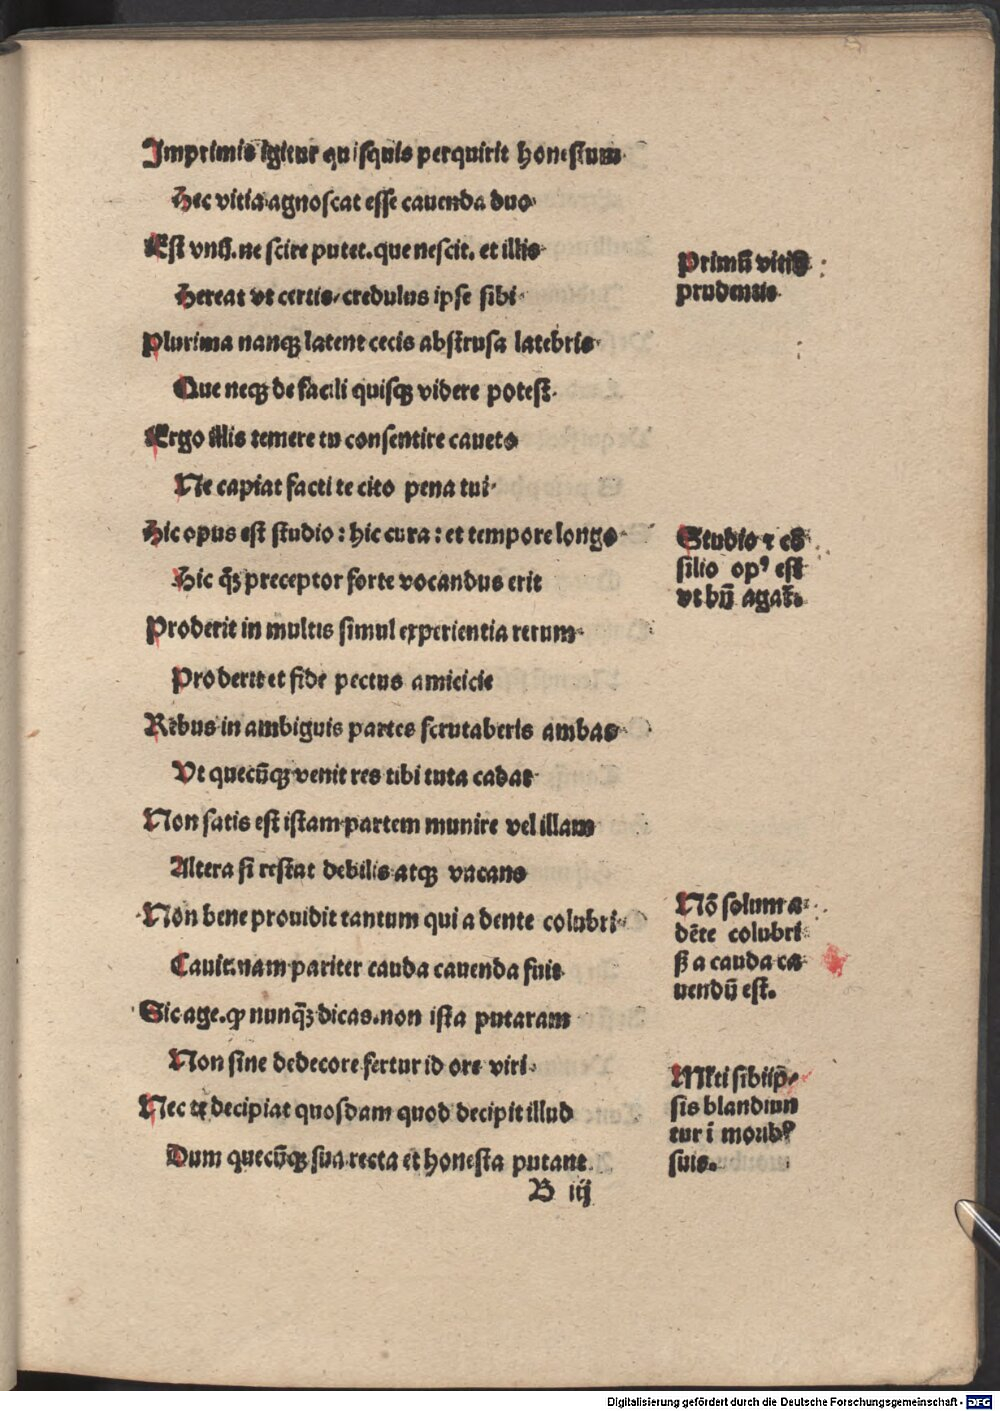 Imprimis igitur quisquis perquirit honestum
Hec vitia agnoscat esse cauenda duo
Est vnū. ne scire putet. que nescit. et illis
Hereat vt certis/ credulus ipse sibi
Plurima nanqꝫ latent cecis abstrusa latebris
Que neqꝫ de facili quisqꝫ videre potest.
Ergo illis temere tu consentire caueto
Ne capiat facti te cito pena tui
Hic opus est studio: hic cura: et tempore longo
Hic qꝫ̄ preceptor forte vocandus erit
Proderit in multis simul experientia rerum
Proderit et fide pectus amicicie
Rebus in ambiguis partes scrutaberis ambas
Vt quecūqꝫ venit res tibi tuta cadat
Non satis est istam partem munire vel illam
Altera si restat debilis atqꝫ vacans
Non bene prouidit tantum qui a dente colubri
Cauit. nam pariter cauda cauenda fuit
Sic age. ꝙ nunqꝫ̄ dicas. non ista putaram
Non sine dedecore fertur id ore viri
Nec te decipiat quosdam quod decipit illud
Dum quecūqꝫ sua recta et honesta putant
B iij
Primū vitiū
prudentis
Studio ⁊ cō
silio opꝰ est
vt bñ agat̄.
Nō solum a
dēte colubri
ß a cauda ca
uendū est.
Mlti sibiip̄
sis blandiun
tur ī moribꝰ
suis.
Digitalisierung gefördert durch die Deutsche Forschungsgemeinschaft - DFG